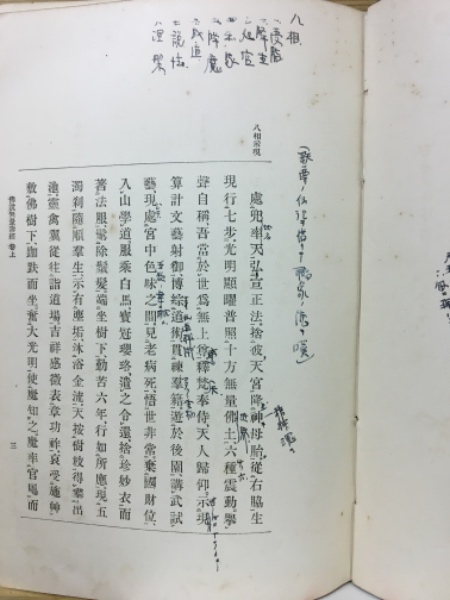 八相
一、受胎
二、降生
三、処宮
四、出家
五、降魔
六、成道
七、説法
八、涅槃
八相示現
處兜率天、弘宣正法、捨彼天宮、降神母胎、從右脇生、
現行七步、光明顯曜、普照十方無量佛土、六種震動、擧
聲自稱、吾當於世爲無上尊、釋梵奉侍、天人歸仰、示現
算計文藝射御、博綜道術、貫練羣籍、遊於後園、講武試
藝、現處宮中色味之間、見老病死、悟世非常、棄國財位、
入山學道、服乘白馬寶冠瓔珞、遣之令還、捨珍妙衣、而
著法服、剃除鬚髮、端坐樹下、勤苦六年、行如所應、現五
濁刹、隨順羣生、示有塵垢、沐浴金流、天按樹枝、得攀出
池、靈禽翼從、往詣道場、吉祥感徵、表章功祚、哀受施艸、
敷佛樹下、跏趺而坐、奮大光明、使魔知之、魔率官屬、而
佛説無量壽經 卷上
三